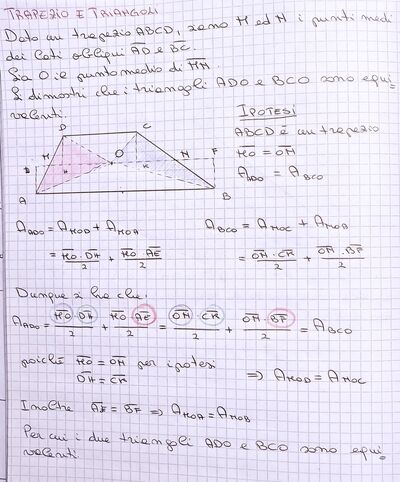 TRAPEZIO E TRIANGOLI
Dato un trapezio ABCD, siano M ed N i punti medi
dei lati obliqui AD e BC.
Sia O il punto medio di MN.
Si dimostri che i triangoli ADO e BCO sono equi-
valenti.
IPOTESI
ABCD è un trapezio
MO = ON
A_ADO = A_BCO
D C
M O N F
E H K
A B
A_ADO = A_MOD + A_MOA
= MO · DH / 2 + MO · AE / 2
A_BCO = A_NOC + A_NOB
= ON · CK / 2 + ON · BF / 2
Dunque si ha che:
A_ADO = MO · DH / 2 + MO · AE / 2 = ON · CK / 2 + ON · BF / 2 = A_BCO
poiché MO = ON per ipotesi
DH = CK ⇒ A_MOD = A_NOC
Inoltre AE = BF ⇒ A_MOA = A_NOB
Per cui i due triangoli ADO e BCO sono equi-
valenti.